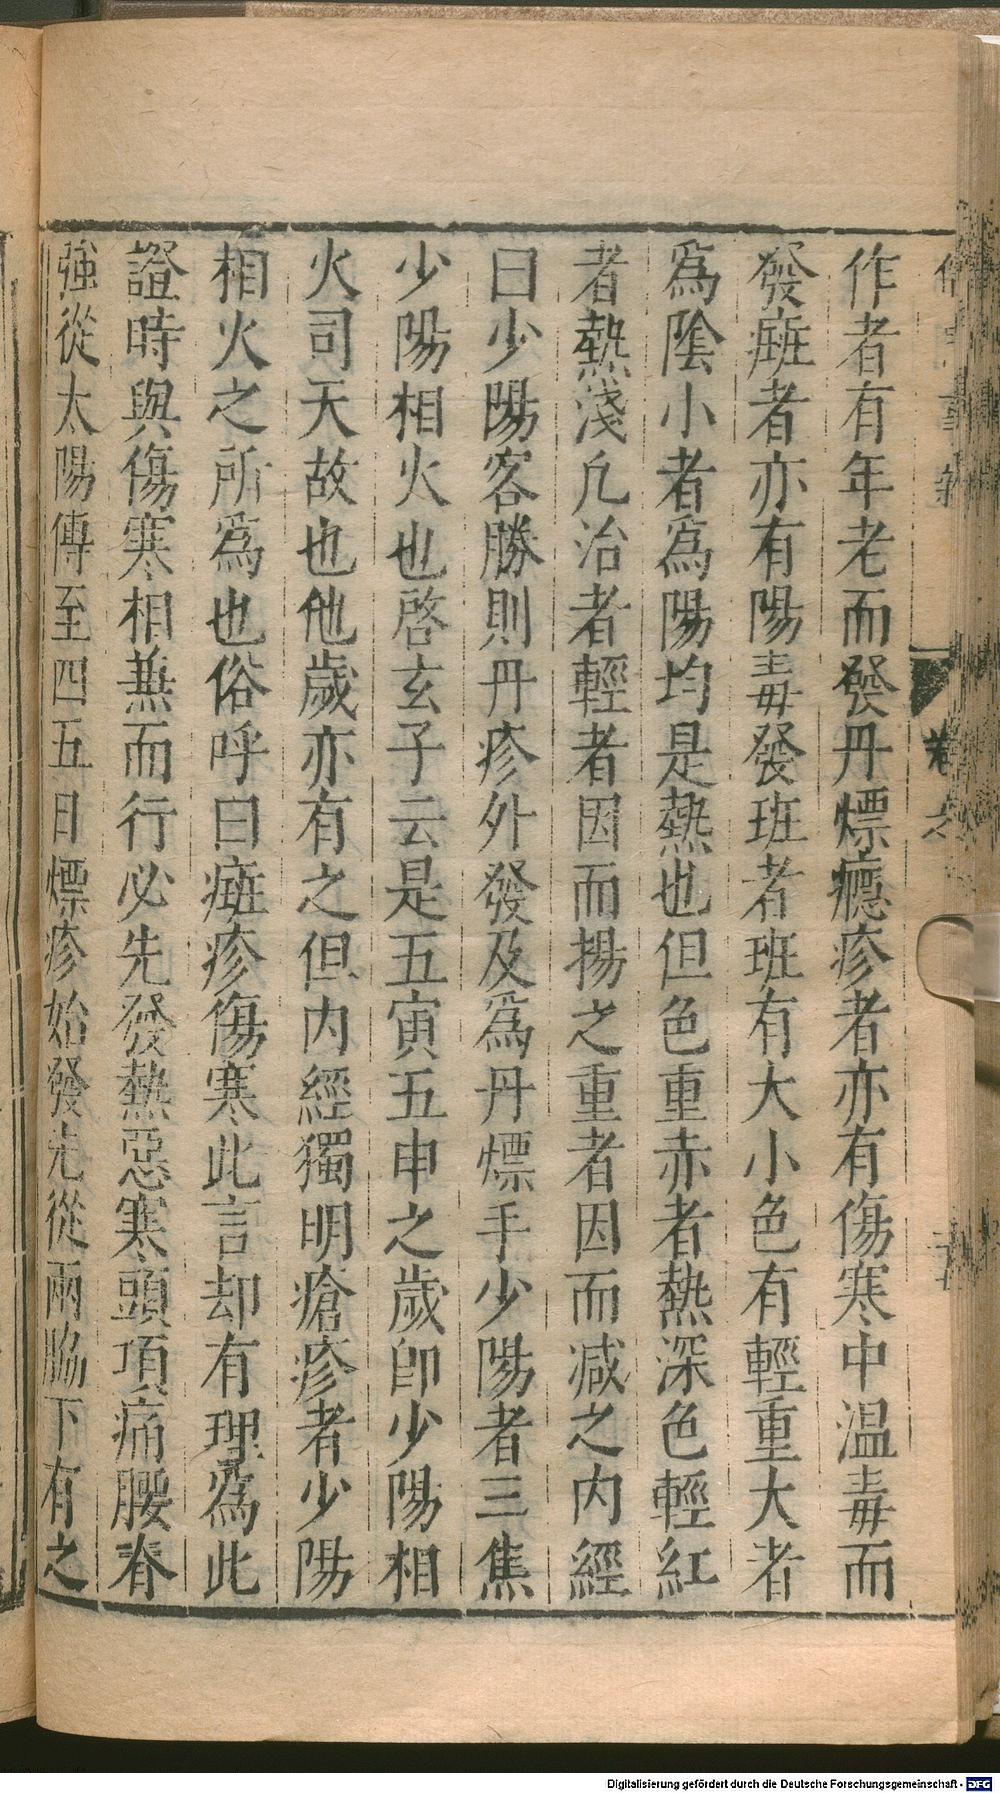 作者有年老而發丹熛癮疹者亦有傷寒中温毒而
發癍者亦有陽毒發班者班有大小色有輕重大者
爲陰小者爲陽均是熱也但色重赤者熱深色輕紅
者熱淺凢治者輕者因而揚之重者因而减之内經
曰少陽客勝則丹疹外發及爲丹熛手少陽者三焦
少陽相火也啓玄子云是五寅五申之歲卽少陽相
火司天故也他歲亦有之但内經獨明瘡疹者少陽
相火之所爲也俗呼曰癍疹傷寒此言却有理爲此
證時與傷寒相兼而行必先發熱惡寒頭項痛腰脊
強從太陽傳至四五日熛疹始發先從兩脇下有之
Digitalisierung gefördert durch die Deutsche Forschungsgemeinschaft - DFG